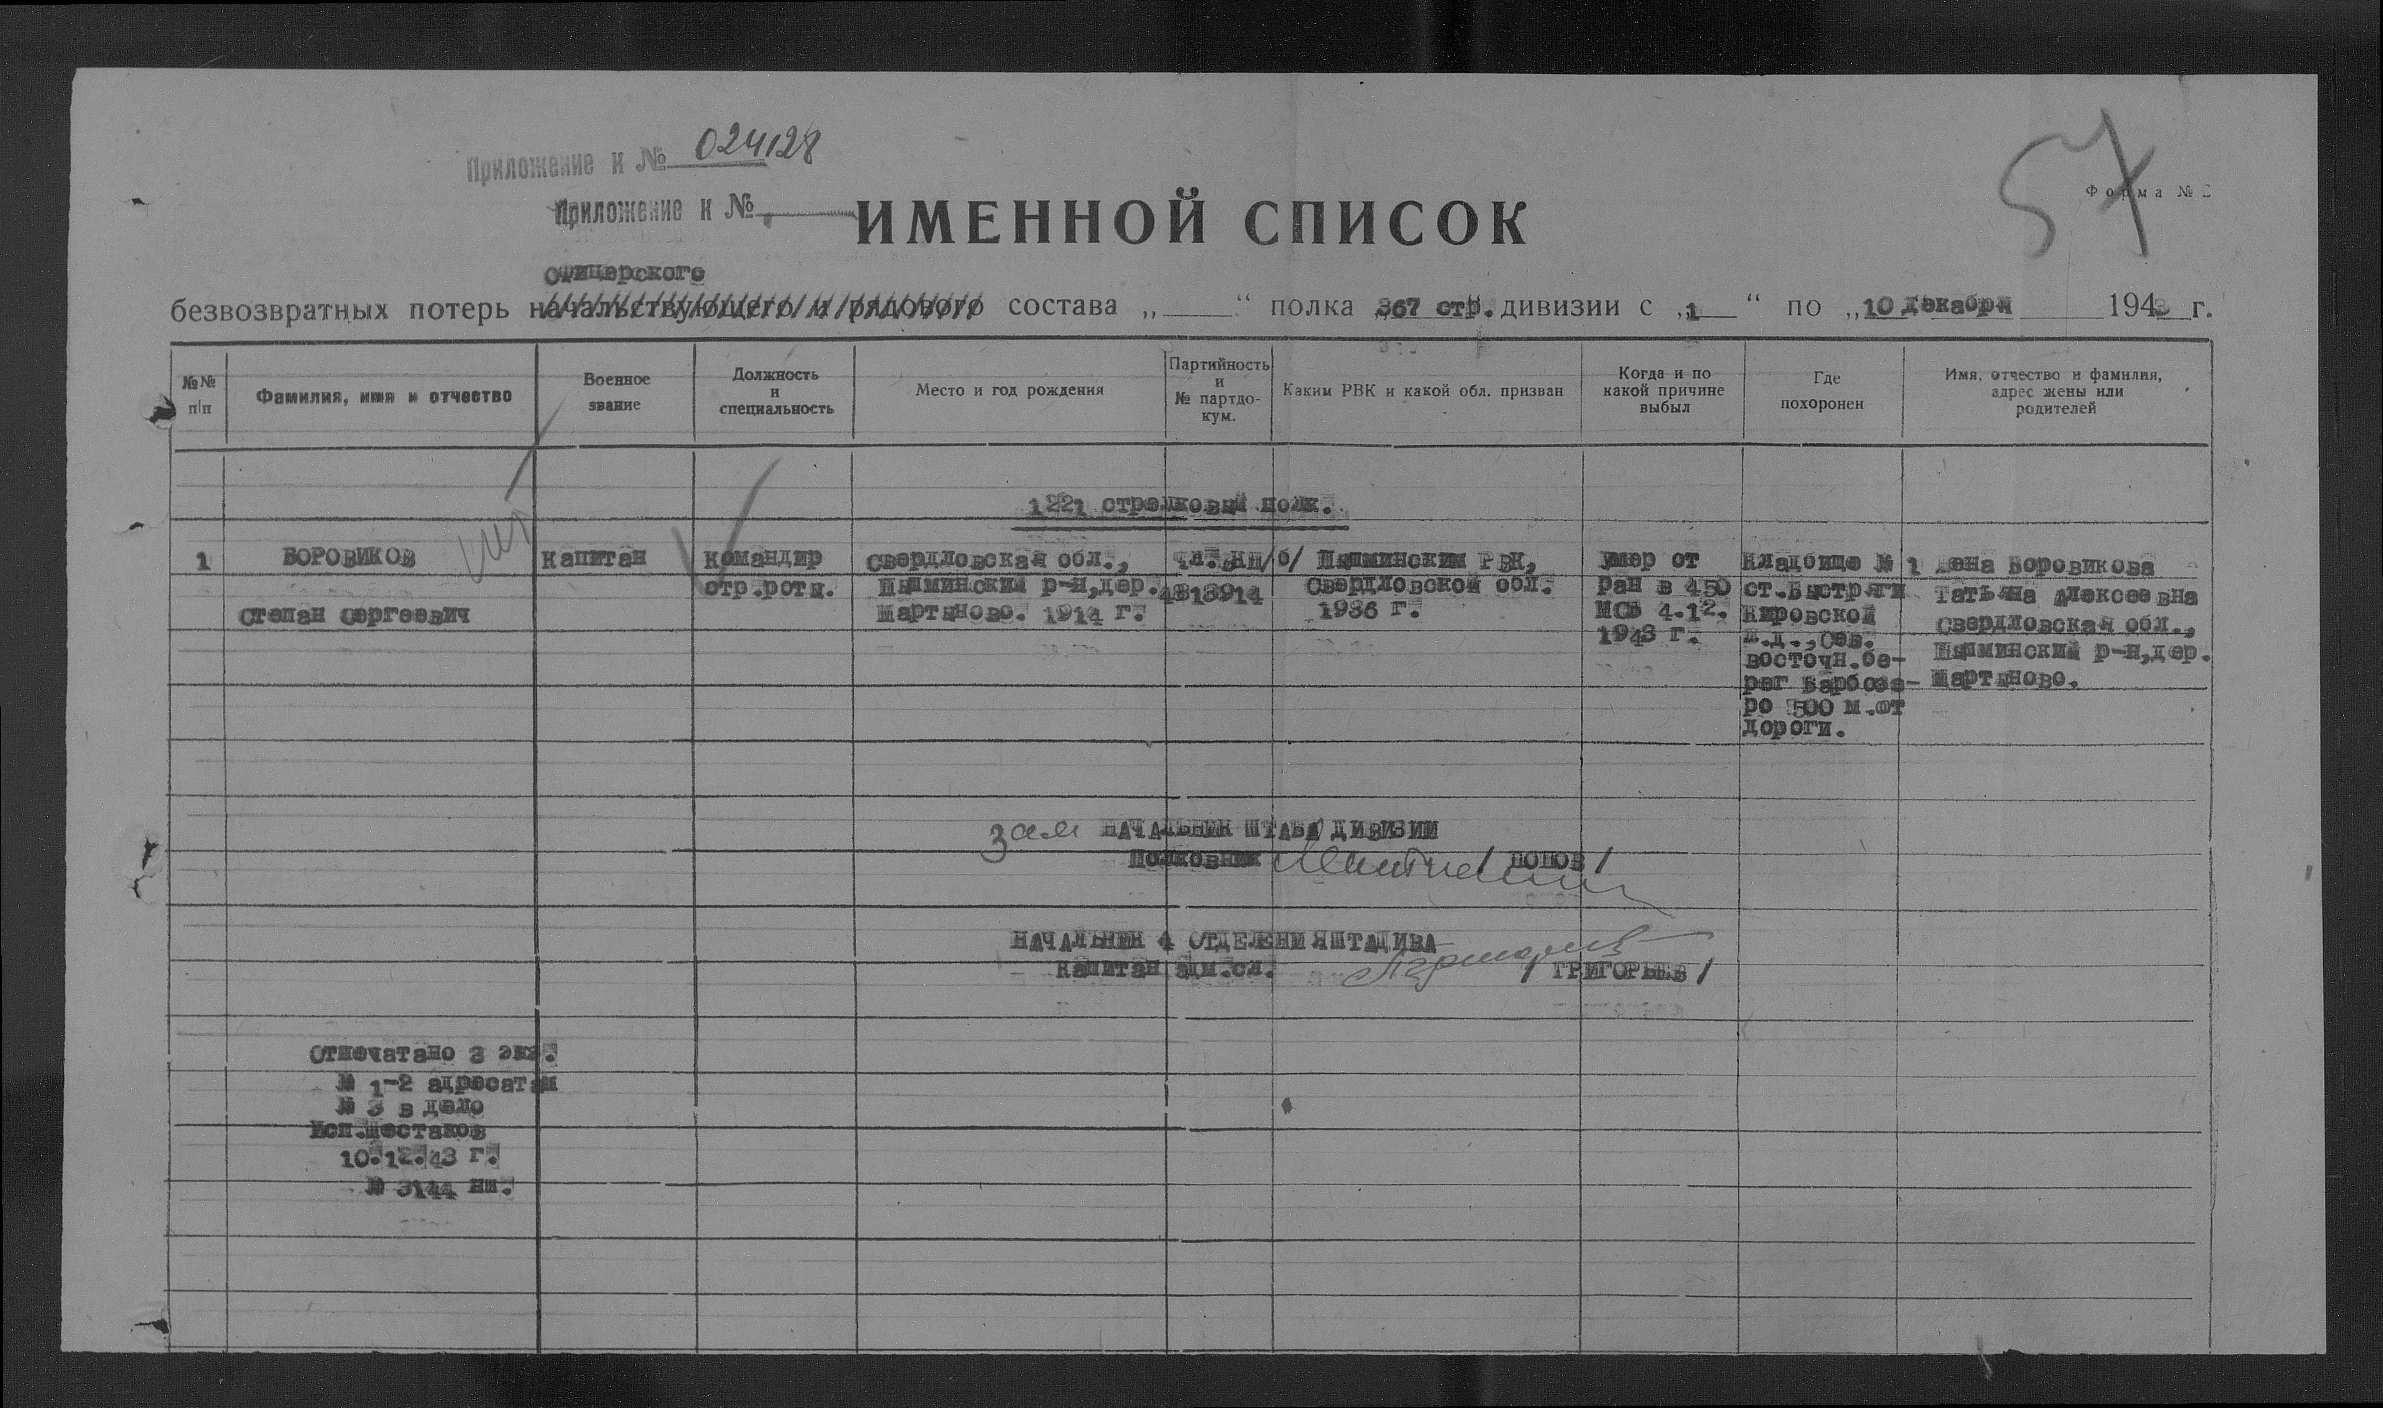 Приложение к № 024128
Приложение к №
57
Форма № 2
ИМЕННОЙ СПИСОК
Офицерского
безвозвратных потерь начальствующего и рядового состава „ “ полка 367 стр. дивизии с „1 “ по „10 декабря 1943 г.
№№ п/п
Фамилия, имя и отчество
Военное звание
Должность и специальность
Место и год рождения
Партийность и № партдо-кум.
Каким РВК и какой обл. призван
Когда и по какой причине выбыл
Где похоронен
Имя, отчество и фамилия, адрес жены или родителей
1221 стрелковый полк.
1
БОРОВИКОВ
Степан Сергеевич
капитан
командир
стр.роты.
Свердловская обл.,
Пышминский р-н,дер.
Мартыново. 1914 г.
чл.ВКП/б/
4313914
Пышминским РВК,
Свердловской обл.
1936 г.
умер от
ран в 450
МСБ 4.12.
1943 г.
Кладбище № 1
ст.Быстряги
Кировской
ж.д.,сев.
восточн.бе-
рег Варбозе-
ро 500 м.от
дороги.
Жена Боровикова
Татьяна Алексеевна
Свердловская обл.,
Пышминский р-н,дер.
Мартыново.
зам НАЧАЛЬНИК ШТАБА ДИВИЗИИ
Полковник / ПОПОВ /
НАЧАЛЬНИК 4 ОТДЕЛЕНИЯ ШТАДИВА
капитан адм.сл. / ГРИГОРЬЕВ /
Отпечатано 3 экз.
№ 1-2 адресатам
№ 3 в дело
Исп.Шестаков
10.12.43 г.
№ 3144 нш.